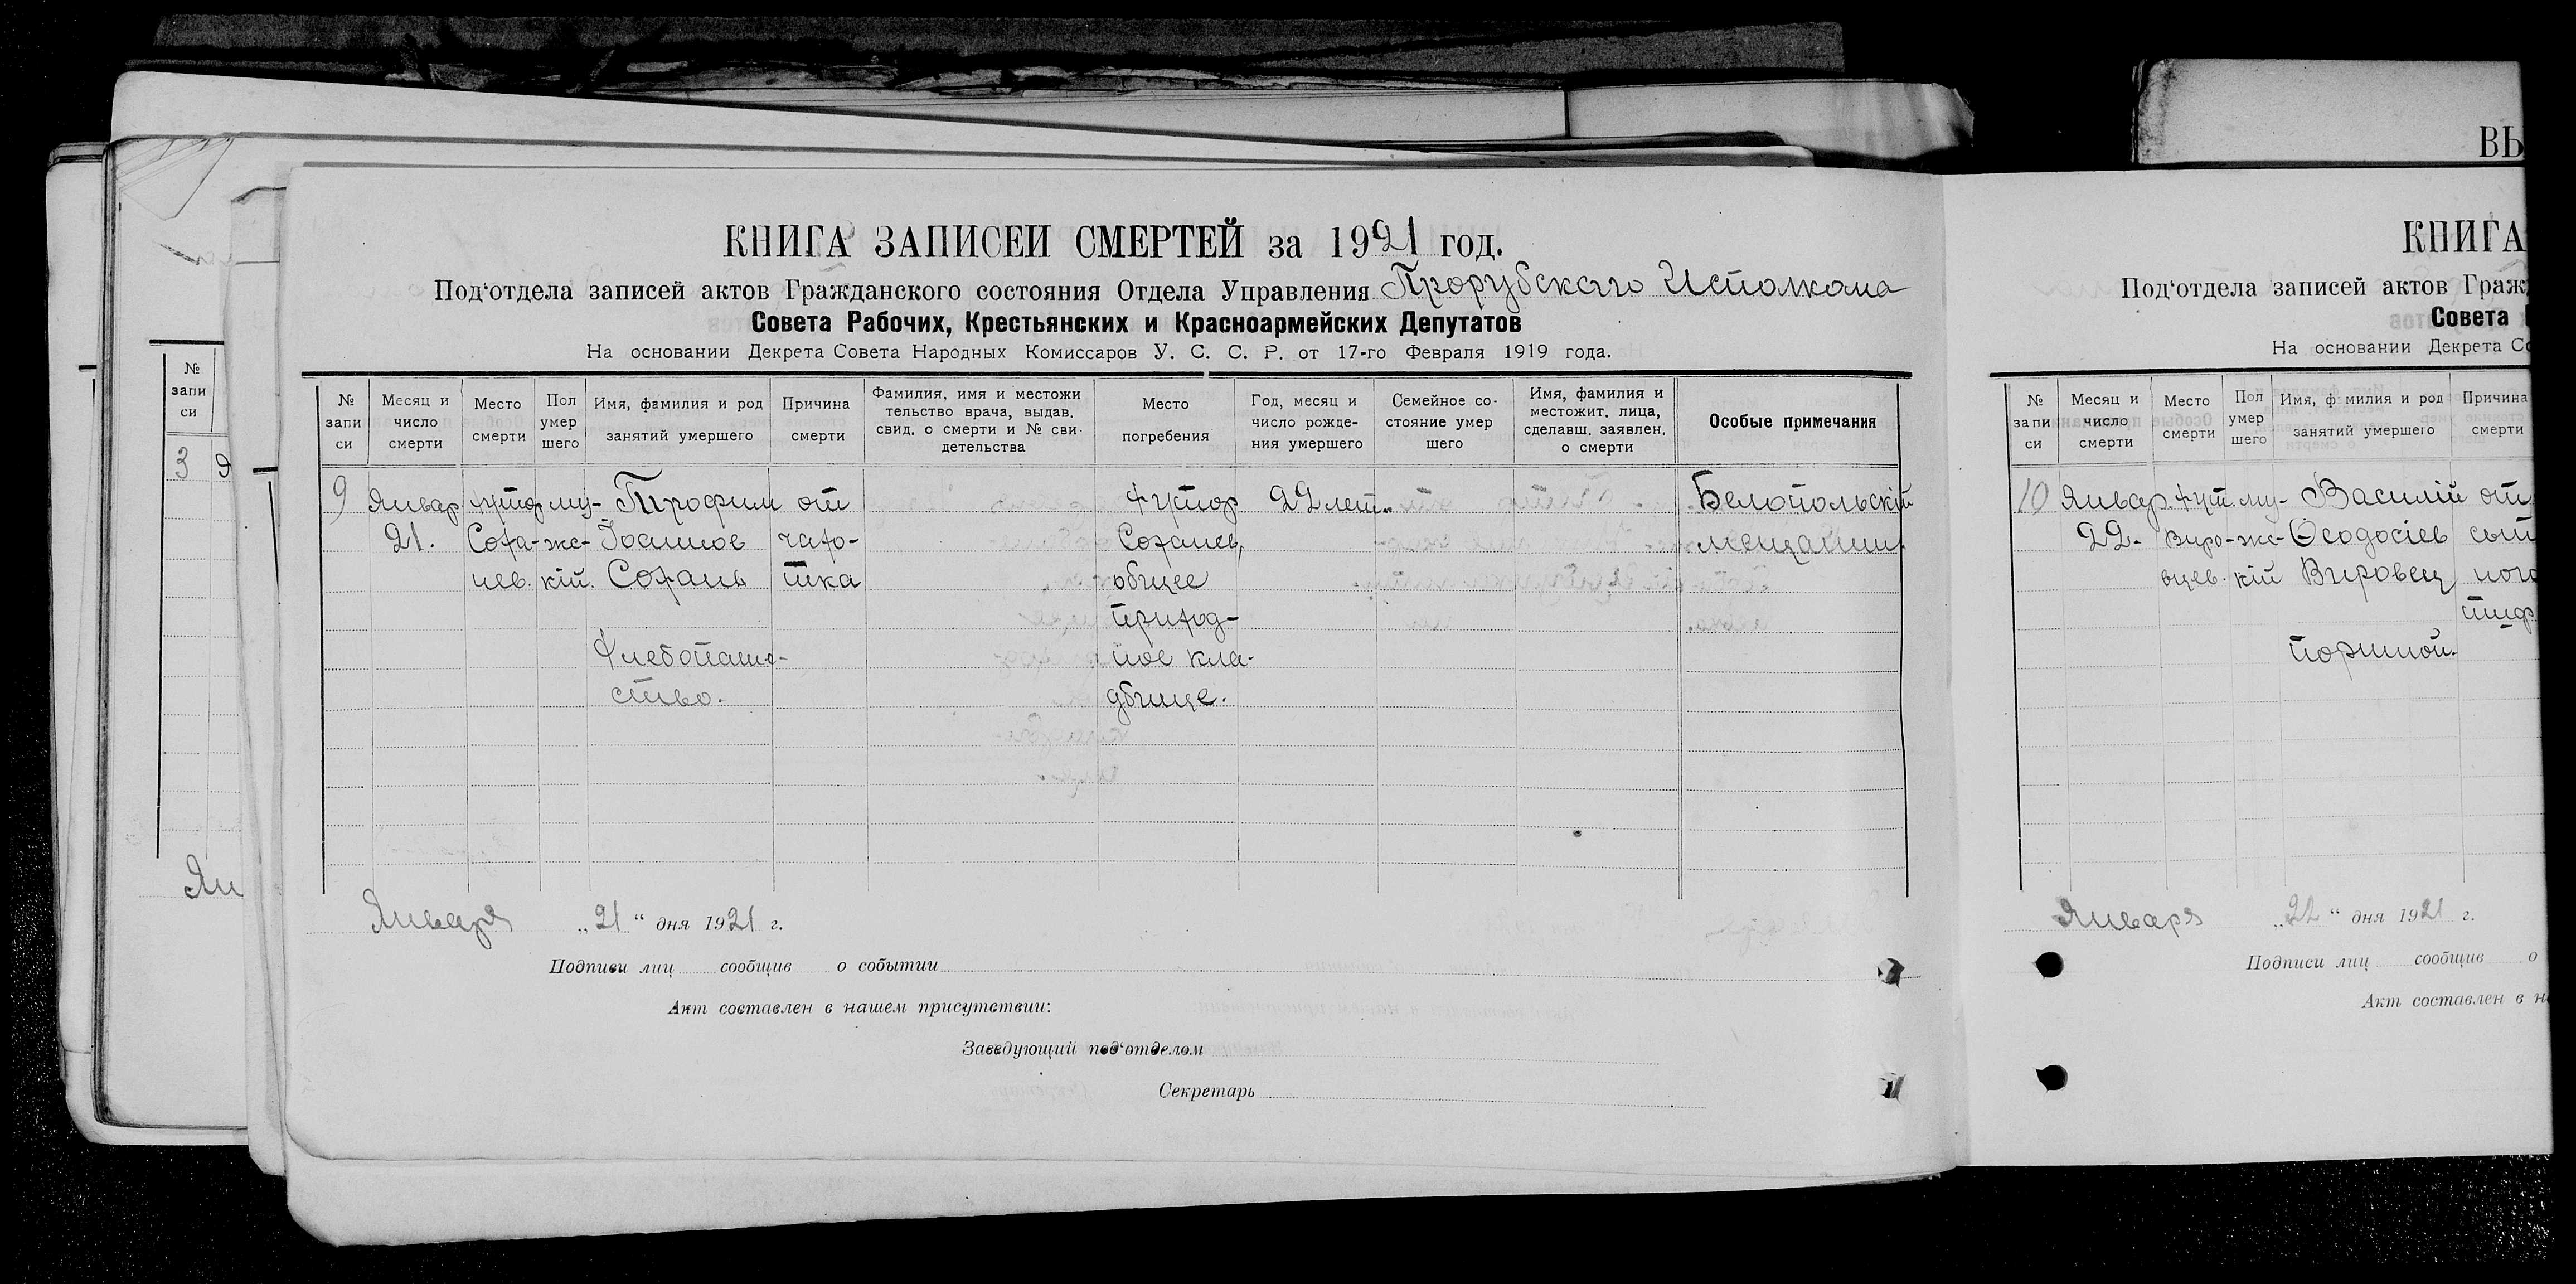 ВЫ
КНИГА ЗАПИСЕЙ СМЕРТЕЙ за 1921 год.
Под‘отдела записей актов Гражданского состояния Отдела Управления Прорубскаго Исполкома
Совета Рабочих, Крестьянских и Красноармейских Депутатов
На основании Декрета Совета Народных Комиссаров У. С. С. Р. от 17-го Февраля 1919 года.
№ запи си
Месяц и число смерти
Место смерти
Пол умер шего
Имя, фамилия и род занятий умершего
Причина смерти
Фамилия, имя и местожи тельство врача, выдав. свид. о смерти и № сви- детельства
Место погребения
Год, месяц и число рожде- ния умершего
Семейное со- стояние умер шего
Имя, фамилия и местожит. лица, сделавш. заявлен. о смерти
Особые примечания
9
Январ
21.
хутор
Соха-
нев.
му-
жс-
кій.
Трофим
Іоаннов
Сохань
Хлебопаше-
ство.
от
чахо-
тка
хутор
Соханев,
общее
приход-
ное кла-
дбище.
22 лет.
Белопольскій
мещанин.
Января „21“ дня 1921 г.
Подписи лиц сообщив о событии
Акт составлен в нашем присутствии:
Заведующий под‘отделом
Секретарь
№ запи си
3
Я
Ян
КНИГА
Под‘отдела записей актов Граж
Совета
На основании Декрета Со
№ запи си
Месяц и число смерти
Место смерти
Пол умер шего
Имя, ф милия и род занятий умершего
Причина смерти
10
Январ.
22.
хут.
Виро-
вцев.
му-
жс-
кій
Василій
Ѳеодосіев
Вировец
портной.
от
сып
ного
тиф
Января „22“ дня 1921 г.
Подписи лиц сообщив о
Акт составлен в н